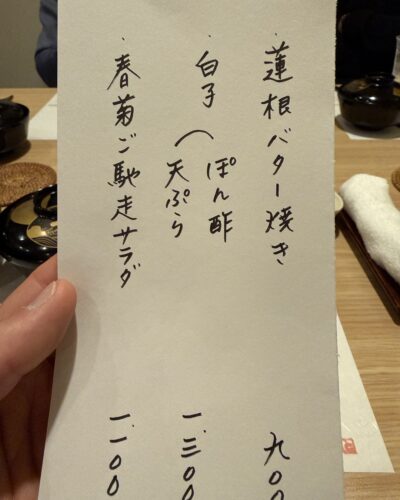 ・蓮根バター焼き 九〇〇
・白子（ぽん酢
天ぷら 一、三〇〇
・春菊ご馳走サラダ 一、一〇〇